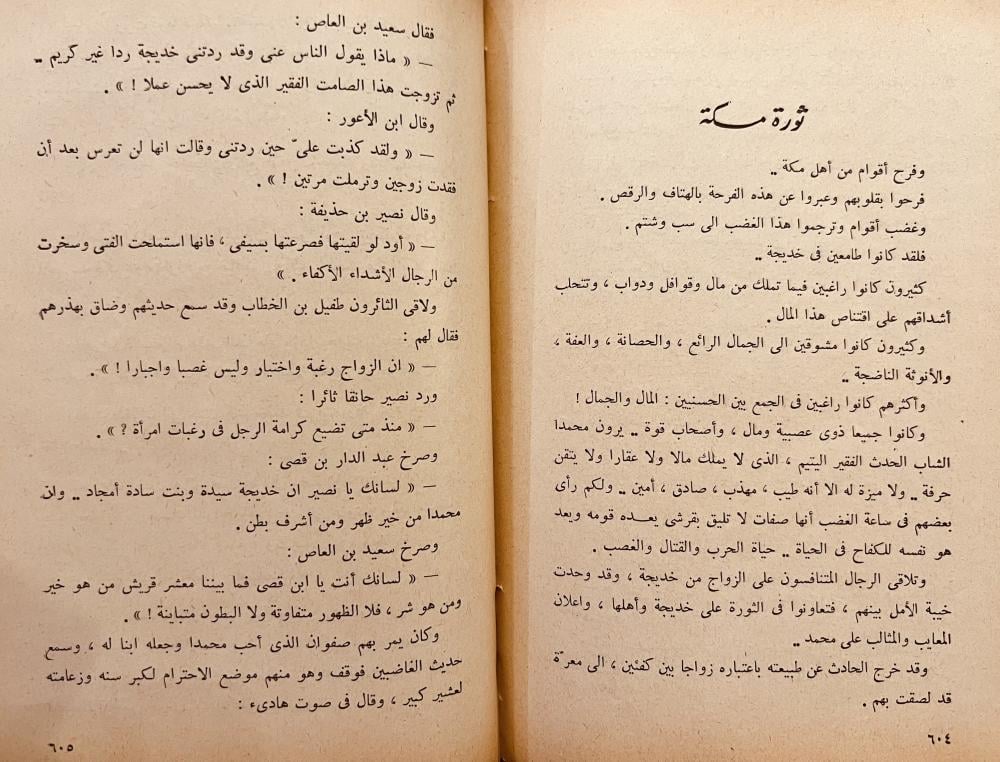 ثورة مكة
وفرح أقوام من أهل مكة ..
فرحوا بقلوبهم وعبروا عن هذه الفرحة بالهتاف والرقص .
وغضب أقوام وترجموا هذا الغضب الى سب وشتم .
فلقد كانوا طامعين فى خديجة ..
كثيرون كانوا راغبين فيما تملك من مال وقوافل ودواب ، وتتحلب
أشداقهم على اقتناص هذا المال .
وكثيرون كانوا مشوقين الى الجمال الرائع ، والحصانة ، والعفة ،
والأنوثة الناضجة ..
وأكثرهم كانوا راغبين فى الجمع بين الحسنيين : المال والجمال !
وكانوا جميعا ذوى عصبية ومال ، وأصحاب قوة .. يرون محمدا
الشاب الحدث الفقير اليتيم ، الذى لا يملك مالا ولا عقارا ولا يتقن
حرفة .. ولا ميزة له الا أنه طيب ، مهذب ، صادق ، أمين .. ولكم رأى
بعضهم فى ساعة الغضب أنها صفات لا تليق بقرشى يعده قومه ويعد
هو نفسه للكفاح فى الحياة .. حياة الحرب والقتال والغصب .
وتلاقى الرجال المتنافسون على الزواج من خديجة ، وقد وحدت
خيبة الأمل بينهم ، فتعاونوا فى الثورة على خديجة وأهلها ، واعلان
المعايب والمثالب على محمد ..
وقد خرج الحادث عن طبيعته باعتباره زواجا بين كفئين ، الى معرّة
قد لصقت بهم .
٦٠٤
فقال سعيد بن العاص :
— « ماذا يقول الناس عنى وقد ردتنى خديجة ردا غير كريم ..
ثم تزوجت هذا الصامت الفقير الذى لا يحسن عملا ! » .
وقال ابن الأعور :
— « ولقد كذبت علىّ حين ردتنى وقالت انها لن تعرس بعد أن
فقدت زوجين وترملت مرتين ! » .
وقال نصير بن حذيفة :
— « أود لو لقيتها فصرعتها بسيفى ، فانها استملحت الفتى وسخرت
من الرجال الأشداء الأكفاء . »
ولاقى الثائرون طفيل بن الخطاب وقد سمع حديثهم وضاق بهذرهم
فقال لهم :
— « ان الزواج رغبة واختيار وليس غصبا واجبارا ! » .
ورد نصير حانقا ثائرا :
— « منذ متى تضيع كرامة الرجل فى رغبات امرأة ? » .
وصرخ عبد الدار بن قصى :
— « لسانك يا نصير ان خديجة سيدة وبنت سادة أمجاد .. وان
محمدا من خير ظهر ومن أشرف بطن .
وصرخ سعيد بن العاص :
— « لسانك أنت يا ابن قصى فما بيننا معشر قريش من هو خير
ومن هو شر ، فلا الظهور متفاوتة ولا البطون متباينة ! » .
وكان يمر بهم صفوان الذى أحب محمدا وجعله ابنا له ، وسمع
حديث الغاضبين فوقف وهو منهم موضع الاحترام لكبر سنه وزعامته
لعشير كبير ، وقال فى صوت هادىء :
٦٠٥